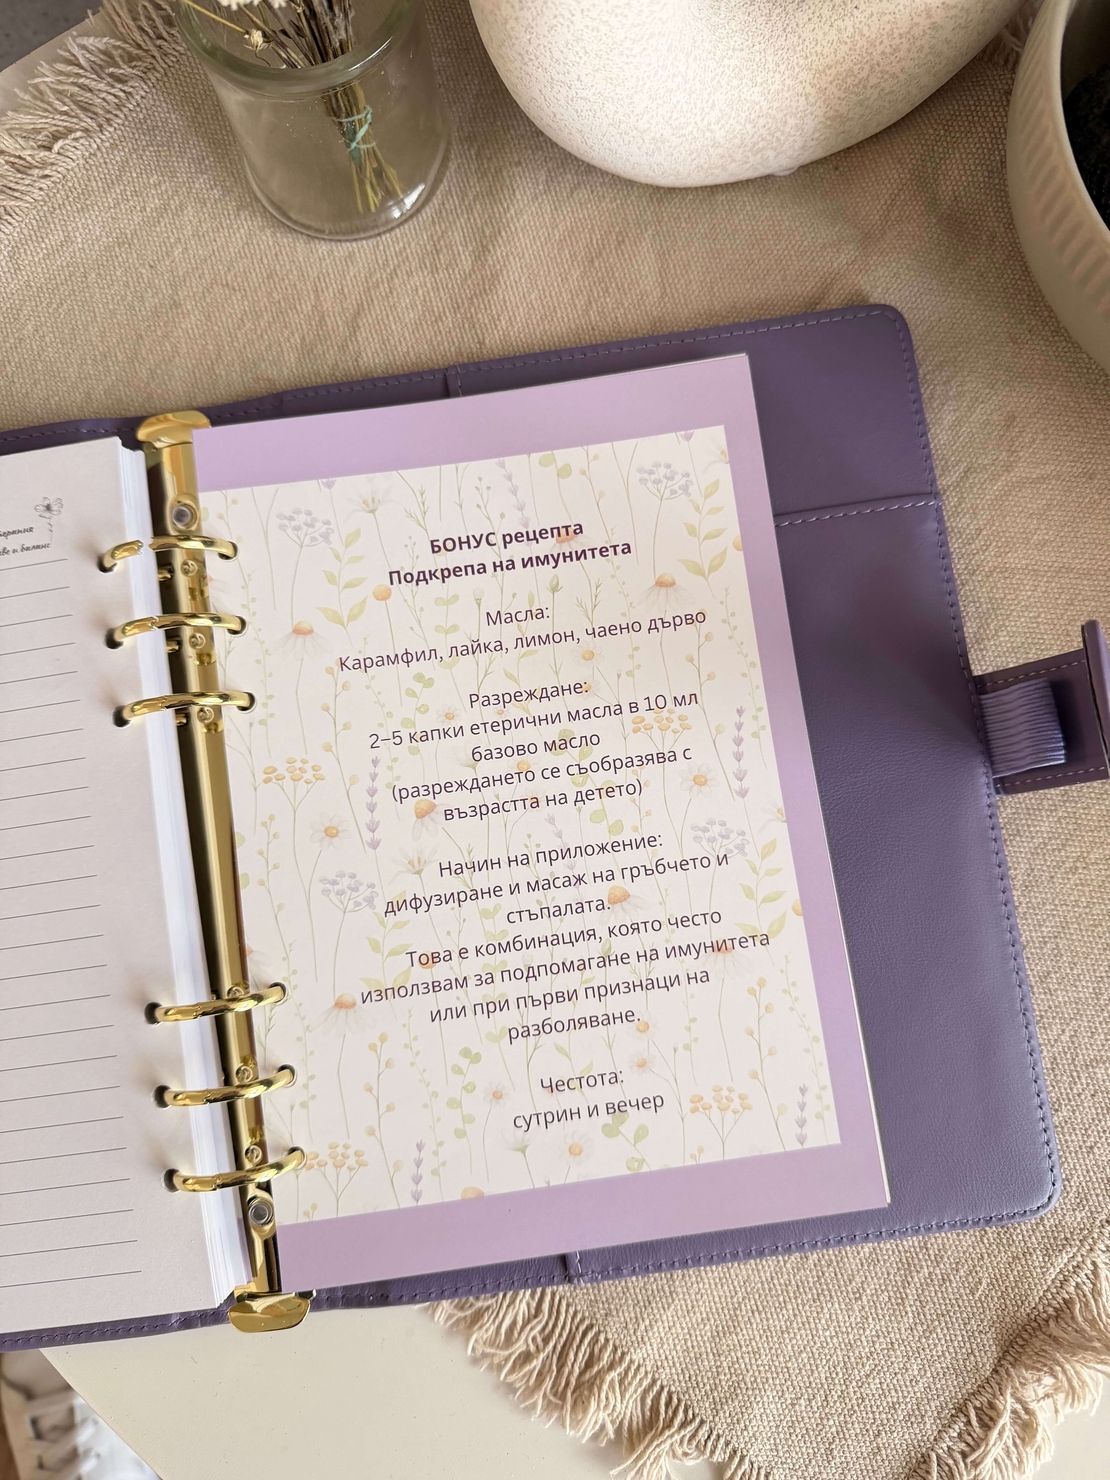 ве и баланс
БОНУС рецепта
Подкрепа на имунитета
Масла:
Карамфил, лайка, лимон, чаено дърво
Разреждане:
2–5 капки етерични масла в 10 мл
базово масло
(разреждането се съобразява с
възрастта на детето)
Начин на приложение:
дифузиране и масаж на гръбчето и
стъпалата.
Това е комбинация, която често
използвам за подпомагане на имунитета
или при първи признаци на
разболяване.
Честота:
сутрин и вечер